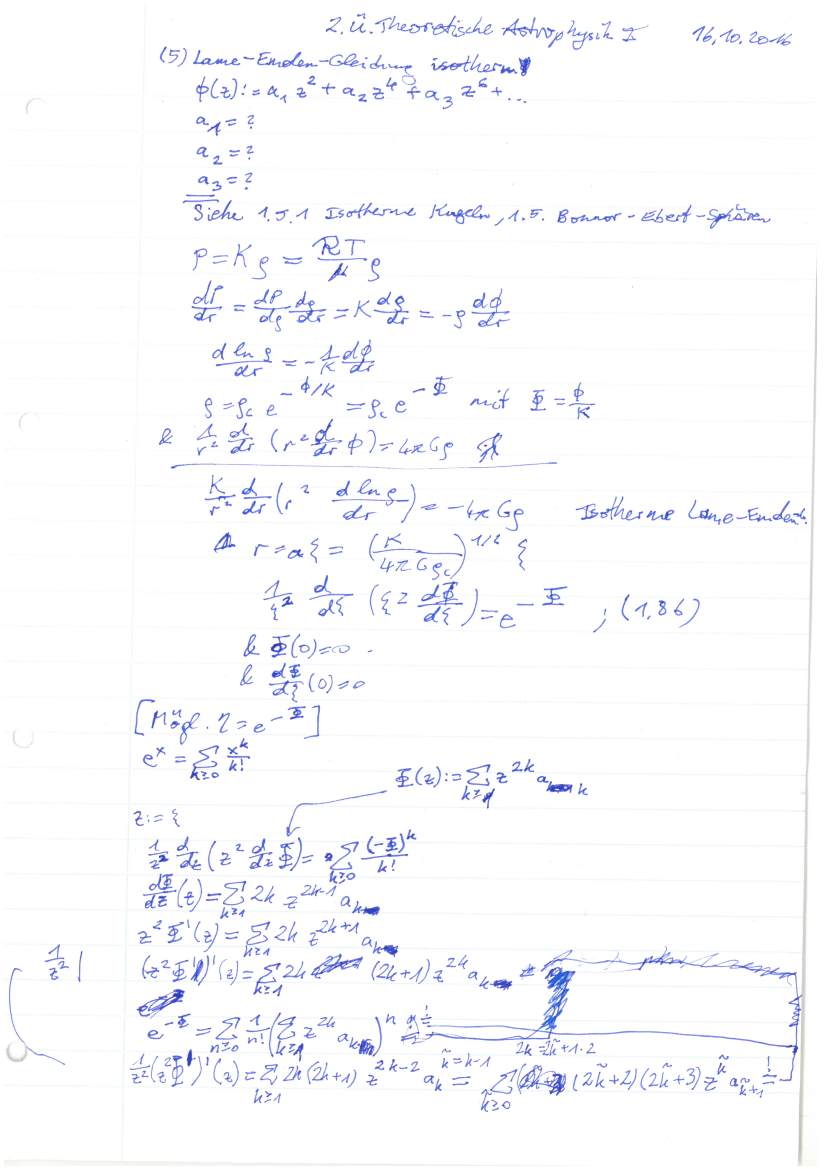 2. Ü. Theoretische Astrophysik I 16.10.2016
(5) Lame-Emden-Gleichung isotherm
ϕ(z) := a₁ z² + a₂ z⁴ + a₃ z⁶ + ...
a₁ = ?
a₂ = ?
a₃ = ?
Siehe 1.5.1 Isotherme Kugeln, 1.5. Bonnor-Ebert-Sphären
P = Kρ = RT/μ ρ
dP/dr = dP/dρ dρ/dr = K dρ/dr = -ρ dϕ/dr
d ln ρ/dr = -1/K dϕ/dr
ρ = ρc e^(-ϕ/K) = ρc e^(-Φ) mit Φ = ϕ/K
& 1/r² d/dr (r² d/dr ϕ) = 4πGρ
K/r² d/dr (r² d ln ρ/dr) = -4πGρ Isotherme Lame-Emden
r = aξ = (K/4πGρc)^(1/2) ξ
1/ξ² d/dξ (ξ² dΦ/dξ) = e^(-Φ) ; (1.86)
& Φ(0)=0
& dΦ/dξ (0)=0
[Mögl. η = e^(-Φ)]
e^x = Σ_(k≥0) x^k/k!
Φ(z) := Σ_(k≥1) z^(2k) a_k
z := ξ
1/z² d/dz (z² d/dz Φ) = Σ_(k≥0) (-Φ)^k/k!
dΦ/dz (z) = Σ_(k≥1) 2k z^(2k-1) a_k
z² Φ'(z) = Σ_(k≥1) 2k z^(2k+1) a_k
1/z² | (z²Φ')'(z) = Σ_(k≥1) 2k (2k+1) z^(2k) a_k
e^(-Φ) = Σ_(n≥0) 1/n! (Σ_(k≥1) z^(2k) a_k)^n
2k = 2k̃+1·2
1/z² (z²Φ')'(z) = Σ_(k≥1) 2k(2k+1) z^(2k-2) a_k =^(k̃=k-1) Σ_(k̃≥0) (2k̃+2)(2k̃+3) z^k̃ a_(k̃+1) =!